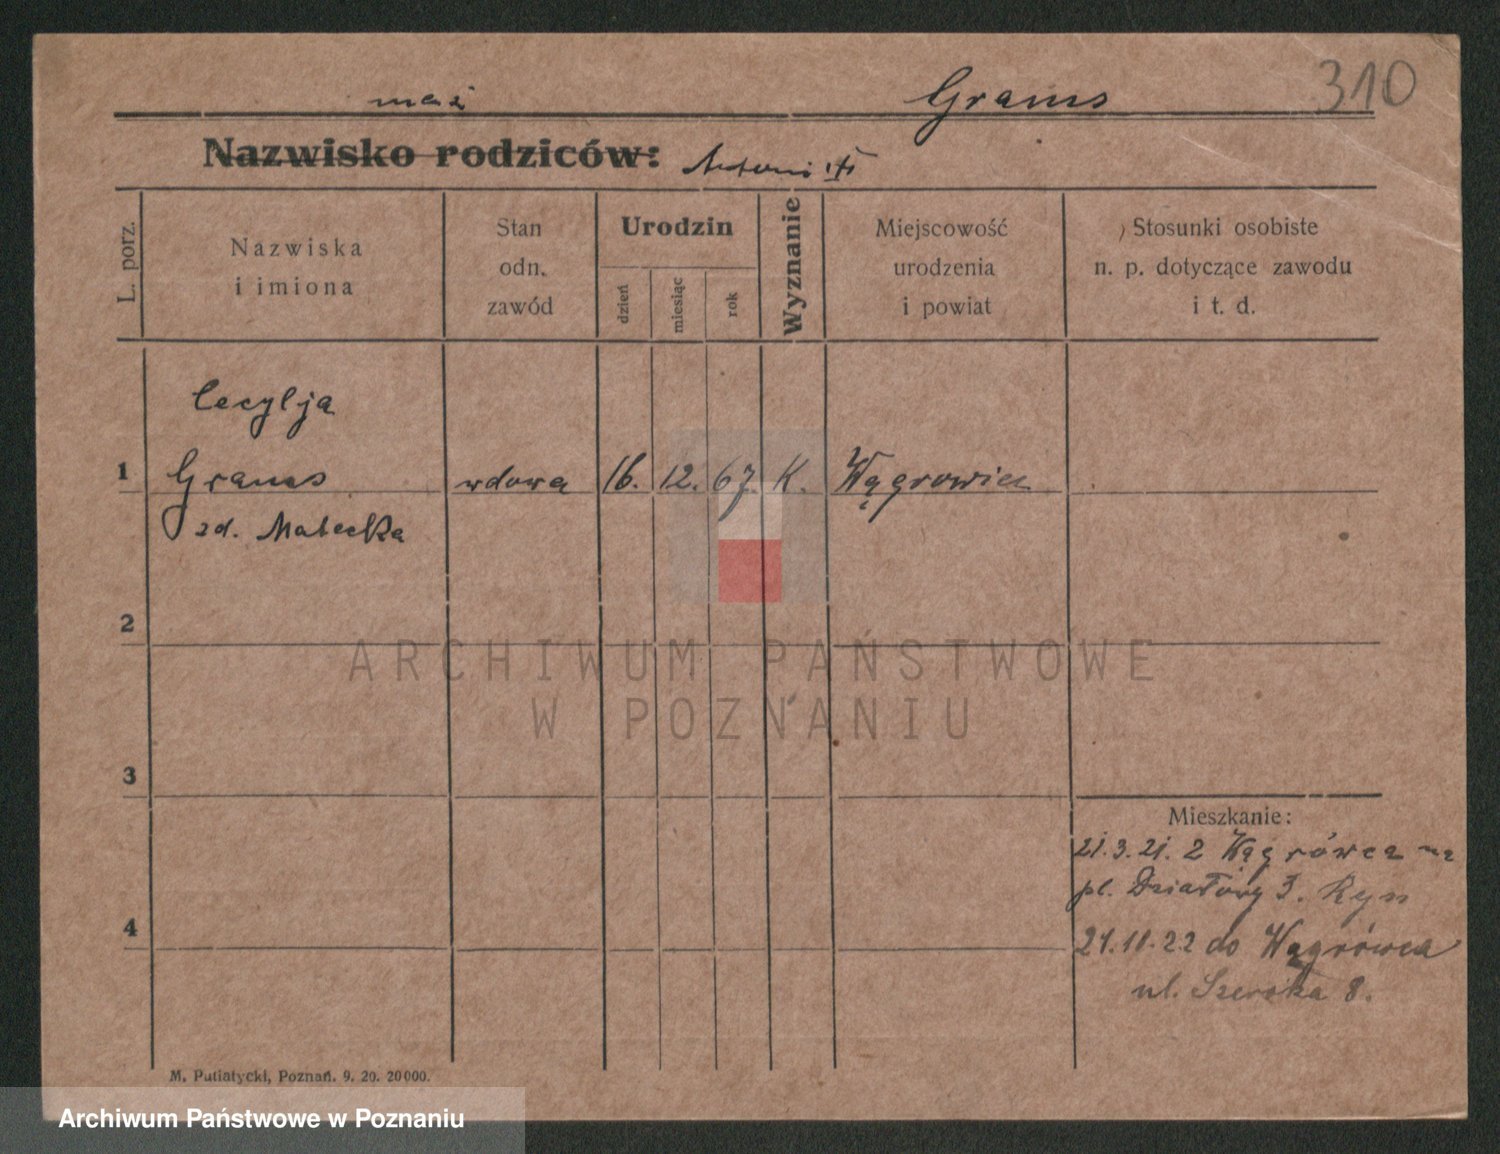 310
mąż Grams
Nazwisko rodziców: Antoni
L. porz.
Nazwiska
i imiona
Stan
odn.
zawód
Urodzin
dzień
miesiąc
rok
Wyznanie
Miejscowość
urodzenia
i powiat
Stosunki osobiste
n. p. dotyczące zawodu
i t. d.
Cecylja
1 Grams wdowa 16. 12. 67. K. Wągrowiec
zd. Małecka
2
ARCHIWUM PAŃSTWOWE
W POZNANIU
3
Mieszkanie:
21.3.21. z Wągrówca na
pl. Działowy 3.
4
24.11.22 do Wągrówca
ul. Szeroka 8.
M. Putiatycki, Poznań. 9. 20. 20000.
Archiwum Państwowe w Poznaniu